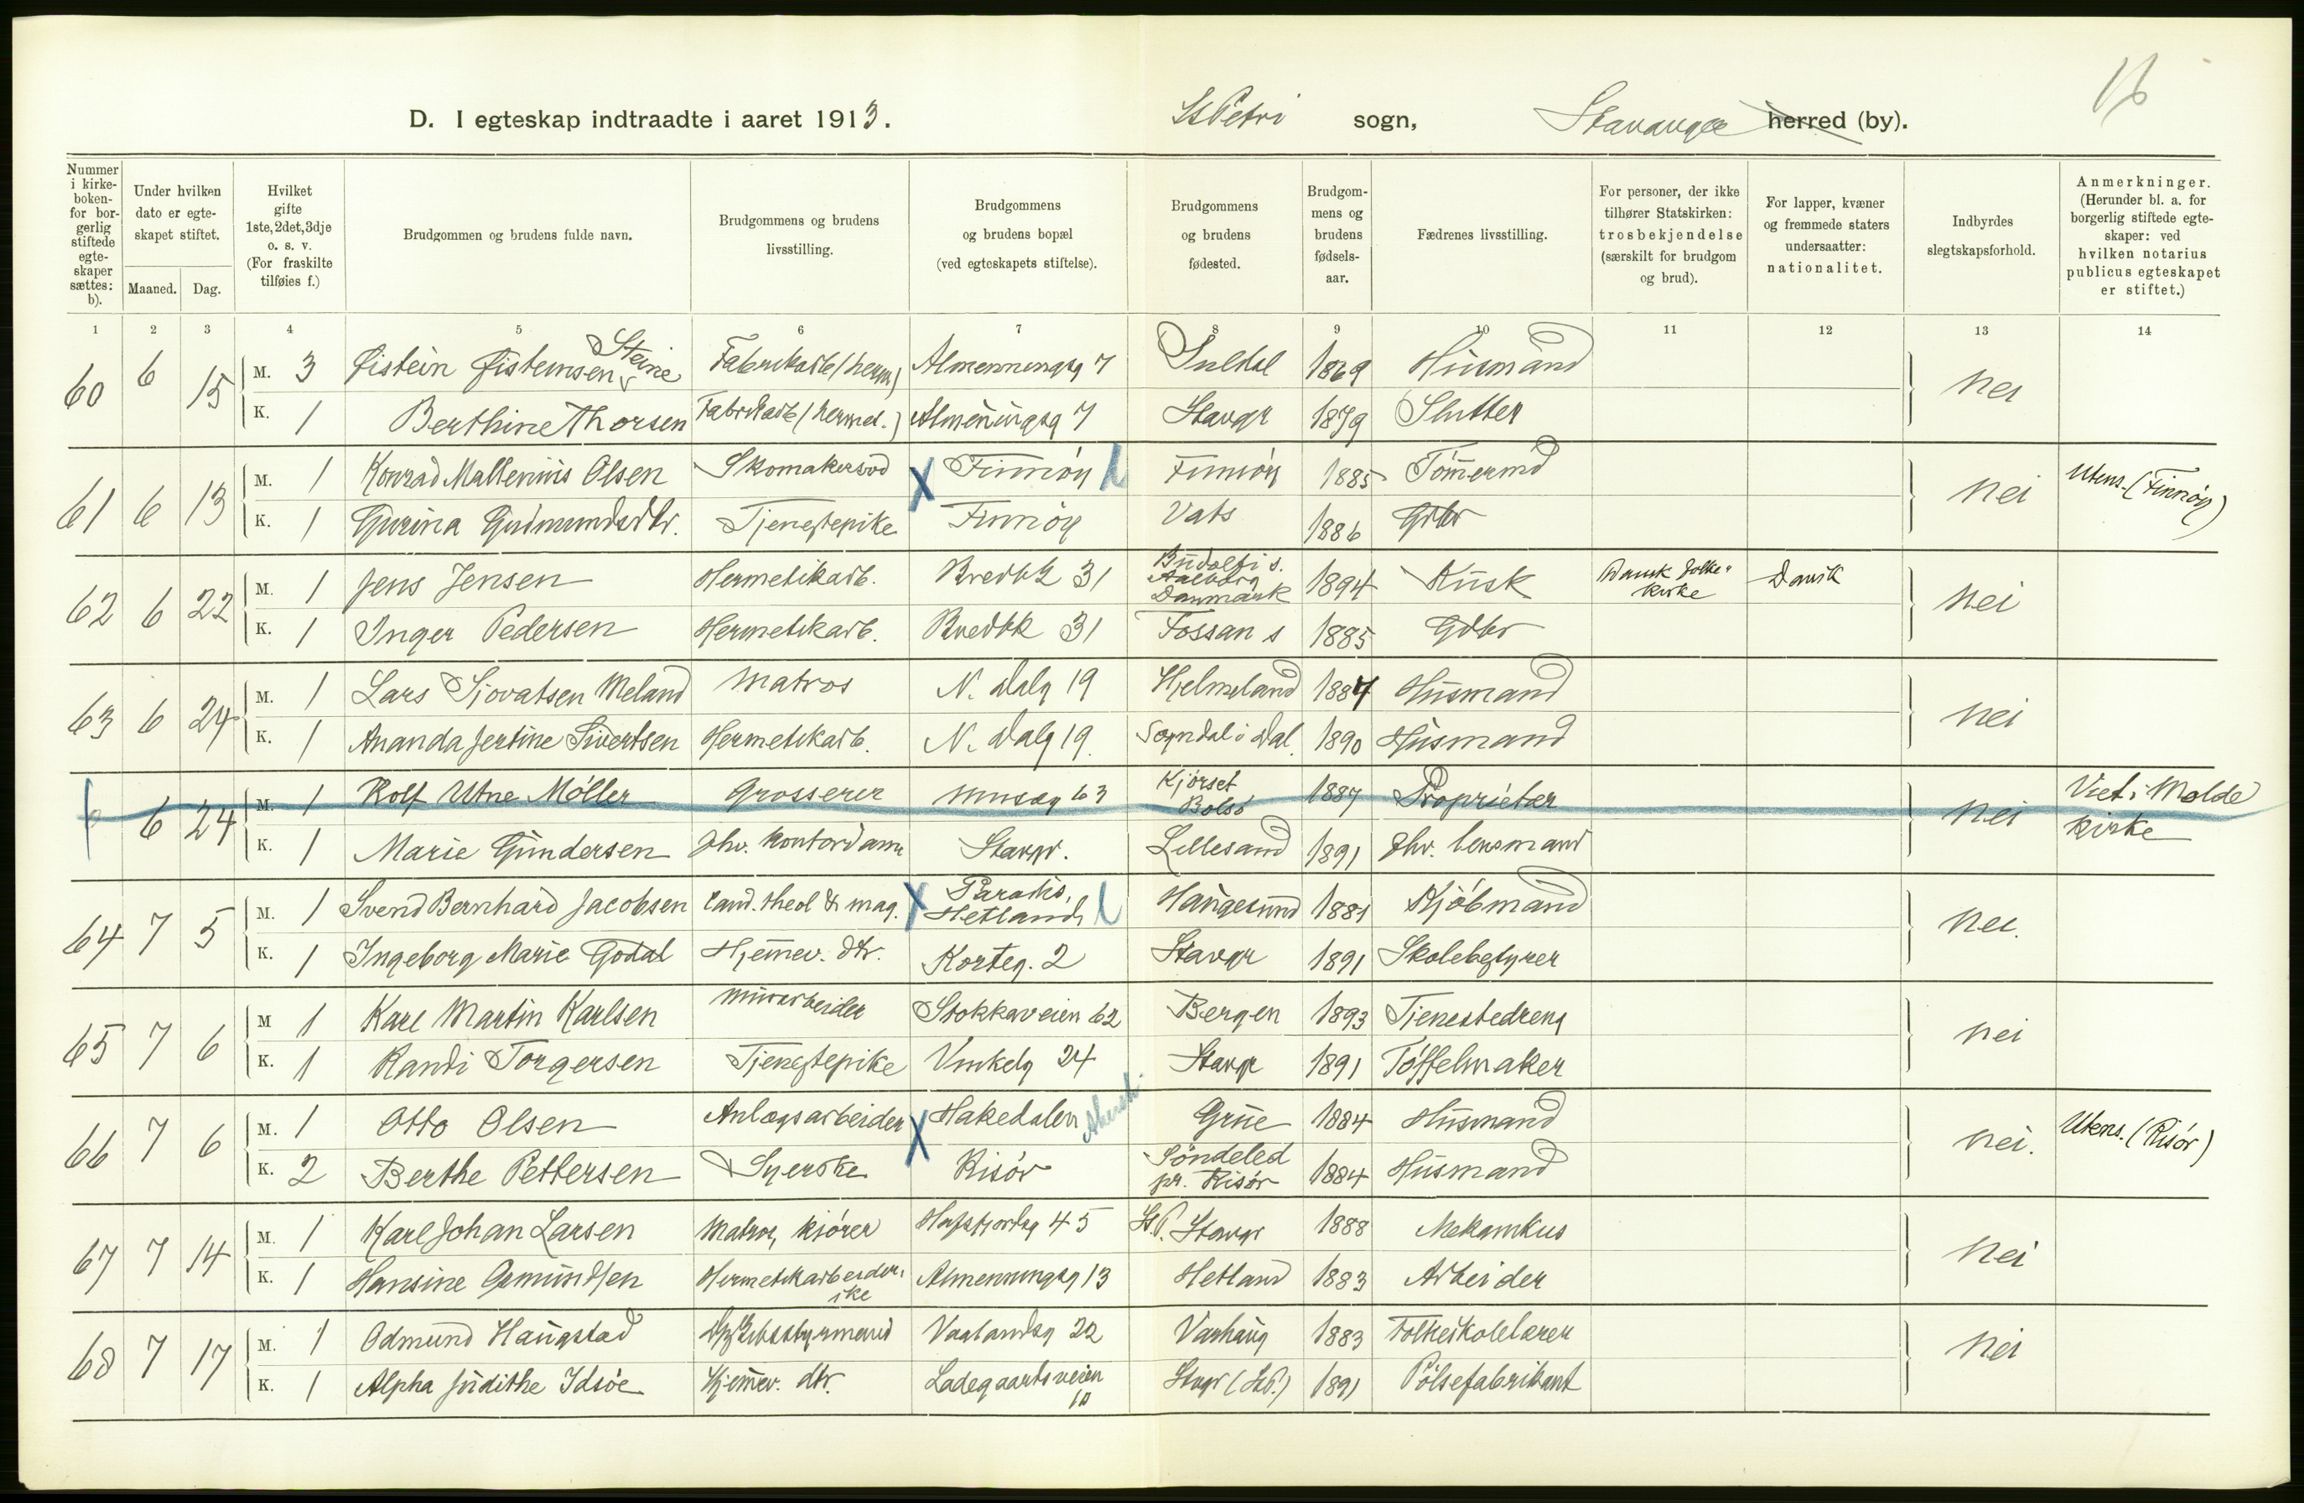 D. I egteskap indtraadte i aaret 1913. St Petri sogn, Stavanger herred (by).
Nummer i kirke-boken- for bor-gerlig stiftede egte-skaper sættes: b).
Under hvilken dato er egte-skapet stiftet.
Maaned. Dag.
Hvilket gifte 1ste, 2det, 3dje o. s. v. (For fraskilte tilføies f.)
Brudgommen og brudens fulde navn.
Brudgommens og brudens livsstilling.
Brudgommens og brudens bopæl (ved egteskapets stiftelse).
Brudgommens og brudens fødested.
Brudgom-mens og brudens fødsels-aar.
Fædrenes livsstilling.
For personer, der ikke tilhører Statskirken: trosbekjendelse (særskilt for brudgom og brud).
For lapper, kvæner og fremmede staters undersaatter: nationalitet.
Indbyrdes slegtskapsforhold.
Anmerkninger. (Herunder bl. a. for borgerlig stiftede egte-skaper: ved hvilken notarius publicus egteskapet er stiftet.)
1 2 3 4 5 6 7 8 9 10 11 12 13 14
60 6 15 M. 3 Øistein Øisteinsen Steine Fabrikarb (herm) Almenningsg 7 Suldal 1869 Husmand nei
K. 1 Berthine Thorsen Fabrikarb (hermet.) Almeningsg 7 Stavgr 1879 Slutter
61 6 13 M. 1 Konrad Mallenius Olsen Skomakersvd Finnöy Finnöy 1885 Tömermd nei Utens. (Finnöy)
K. 1 Gurina Gudmundsdtr. Tjenestepike Finnöy Vats 1886 Gdbr
62 6 22 M. 1 Jens Jensen Hermetikarb. Bredbk 31 Budolfi s. Aalborg Danmark 1894 Kusk Dansk Folke-kirke Dansk nei
K. 1 Inger Pedersen Hermetikarb. Bredbk 31 Fossan s 1885 Gdbr
63 6 24 M. 1 Lars Sjovatsen Meland Matros N. Dalg 19 Hjelmeland 1884 Husmand nei
K. 1 Ananda Jertine Sivertsen Hermetikarb. N. Dalg 19. Sogndal i Dal. 1890 Husmand
6 24 M. 1 Rolf Utne Möller Grosserer Museg 63 Kjörset Bolsö 1887 Proprietær nei Viet i Molde kirke
K. 1 Marie Gundersen fhv. kontordame Stavgr. Lillesand 1891 fhv. lensmand
64 7 5 M. 1 Svend Bernhard Jacobsen Cand. theol & mag. Paradis, Hetland Haugesund 1881 Kjöbmand nei.
K. 1 Ingeborg Marie Godal Hjemmev. dtr. Korteg. 2 Stavgr 1891 Skolebestyrer
65 7 6 M 1 Karl Martin Karlsen Murarbeider Stokkaveien 62 Bergen 1893 Tjenestedreng nei
K. 1 Randi Torgersen Tjenestepike Vinkelg 24 Stavgr 1891 Töffelmaker
66 7 6 M. 1 Otto Olsen Anlægsarbeider Hakedalen Akersh. Grue 1884 Husmand nei. Utens. (Risör)
K. 2 Berthe Pettersen Syerske Risör Söndeled pr. Risör 1884 Husmand
67 7 14 M. 1 Karl Johan Larsen Matros, kjörer Hafsfjordsg 45 St. P. Stavgr 1888 Mekanikus nei
K. 1 Hansine Gemundsen Hermetikarbeiderske Almenningsg 13 Hetland 1883 Arbeider
68 7 17 M. 1 Odmund Haugstad Dpskibsstyrmand Vaalandsg 22 Varhaug 1883 Folkeskolelærer nei
K. 1 Alpha Judithe Idsöe Hjemmev. dtr. Ladegaardsveien 10 Stvgr (St P.) 1891 Pölsefabrikant